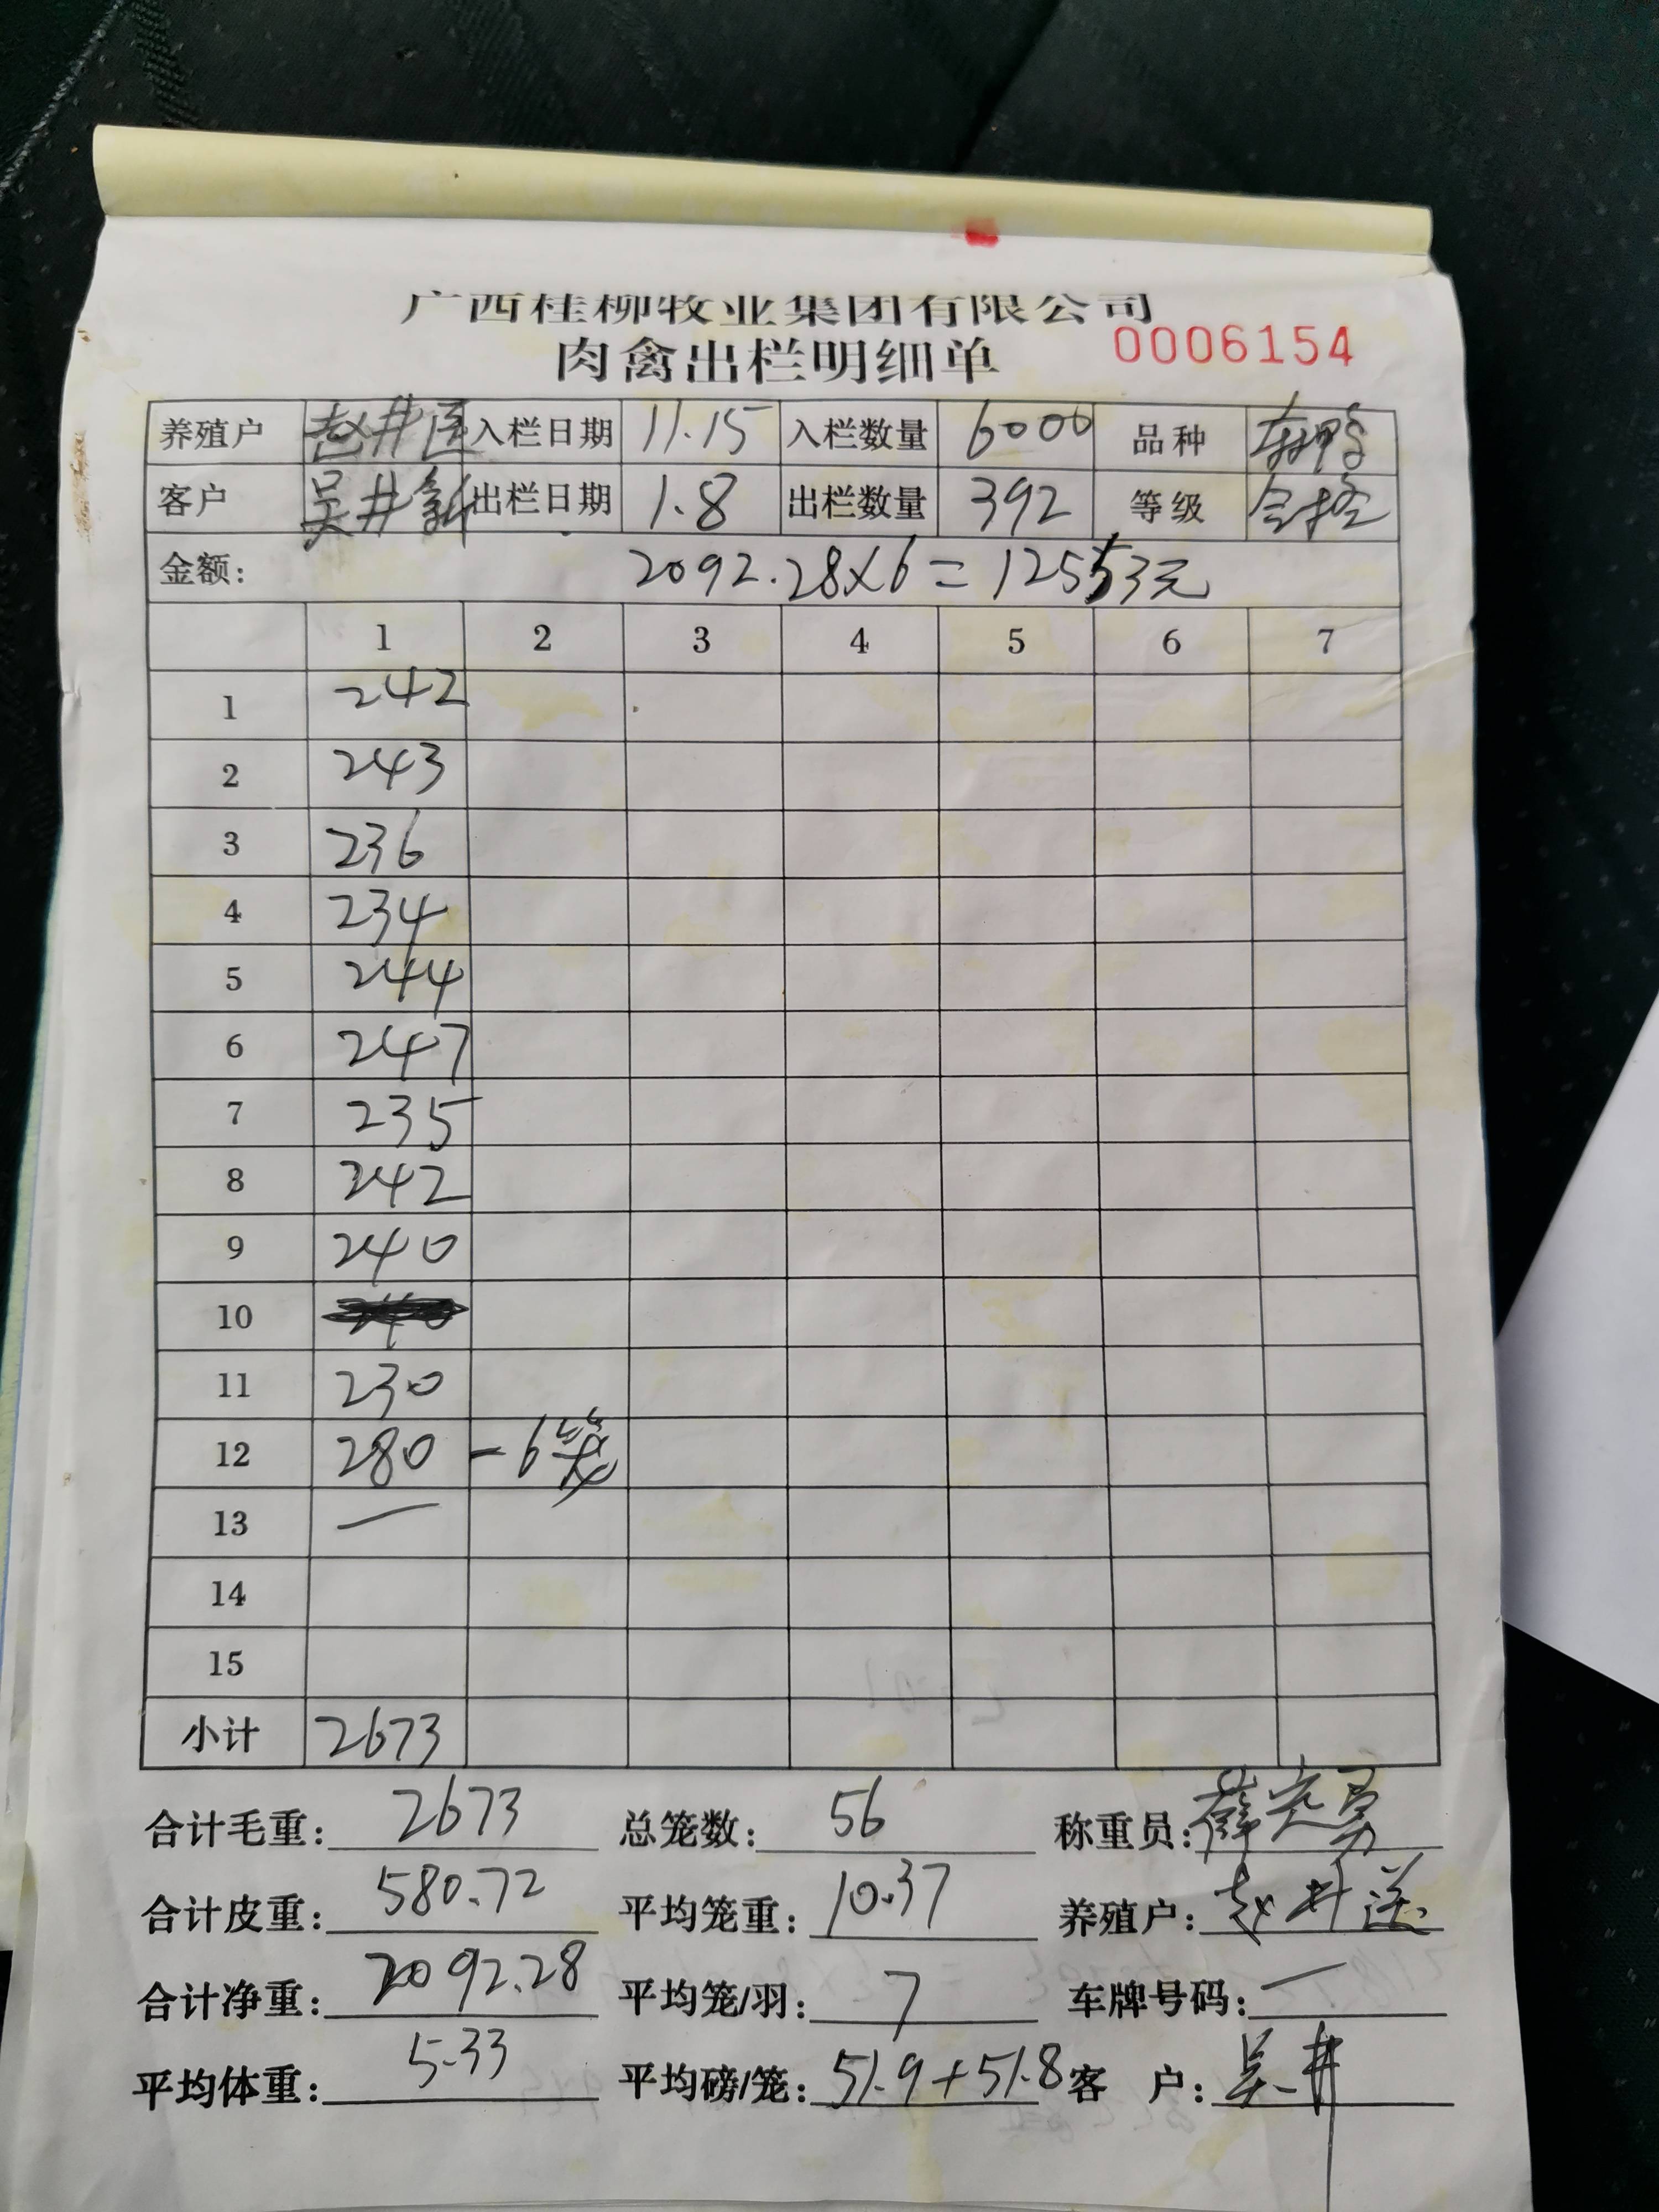 广西桂柳牧业集团有限公司
肉禽出栏明细单 0006154
养殖户 赵井 入栏日期 11.15 入栏数量 6000 品种
客户 吴井新 出栏日期 1.8 出栏数量 392 等级 合格
金额: 2092.28×6=12553元
1 2 3 4 5 6 7
1 242
2 243
3 236
4 234
5 244
6 247
7 235
8 242
9 240
10
11 230
12 280 -6笼
13 —
14
15
小计 2673
合计毛重: 2673 总笼数: 56 称重员:
合计皮重: 580.72 平均笼重: 10.37 养殖户: 赵井送
合计净重: 2092.28 平均笼/羽: 7 车牌号码: —
平均体重: 5.33 平均磅/笼: 51.9+51.8 客 户: 吴井